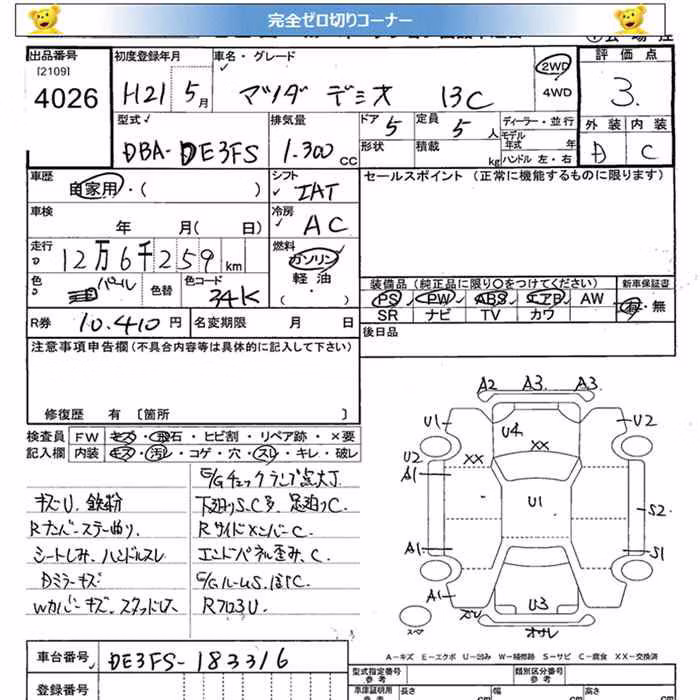 完全ゼロ切りコーナー
出品番号 初度登録年月 車名・グレード 2WD 評価点
[2109]
4026 H21 5月 マツダ デミオ 13C 4WD 3.
型式 排気量 ドア 5 定員 5人 ディーラー・並行 外装 内装
モデル年式 年
DBA-DE3FS 1.300cc 形状 積載 kg ハンドル 左・右 D C
車歴 シフト セールスポイント (正常に機能するものに限ります)
自家用・( ) IAT
車検 冷房
年 月( 日) AC
走行 燃料
12万6千259km ガソリン
色 パール 色替 色コード 34K 軽油 装備品 (純正品に限り〇をつけてください) 新車保証書
( ・ ) PS PW ABS エアB AW 有・無
SR ナビ TV カワ
R券 10.410円 名変期限 月 日 後日品
注意事項申告欄 (不具合内容等は具体的に記入して下さい)
修復歴 有 [箇所 ]
検査員 FW キズ・飛石・ヒビ割・リペア跡・×要
記入欄 内装 キズ・汚れ・コゲ・穴・スレ・キレ・破レ
E/Gチェックランプ点大丁
キズU.鉄粉 下廻りS.C多 足廻りC
Rナンバーステー曲り Rサイドメンバーc
シートしみ、ハンドルスレ エンドパネル歪み.C.
Dミラーキズ
Wカバーキズ.スタッドレス Rフロ3U.
A2 A3 A3
U1 U4 U2
XX XX
U2
A1 U1 S2
A1 S1
A1 U3
A-キズ E-エクボ U-凹み W-補修跡 S-サビ C-腐食 XX-交換済
車台番号 DE3FS-183316
登録番号
型式指定番号 参考 類別区分番号 参考
車庫証明用 参考 長さ cm 幅 cm 高さ cm